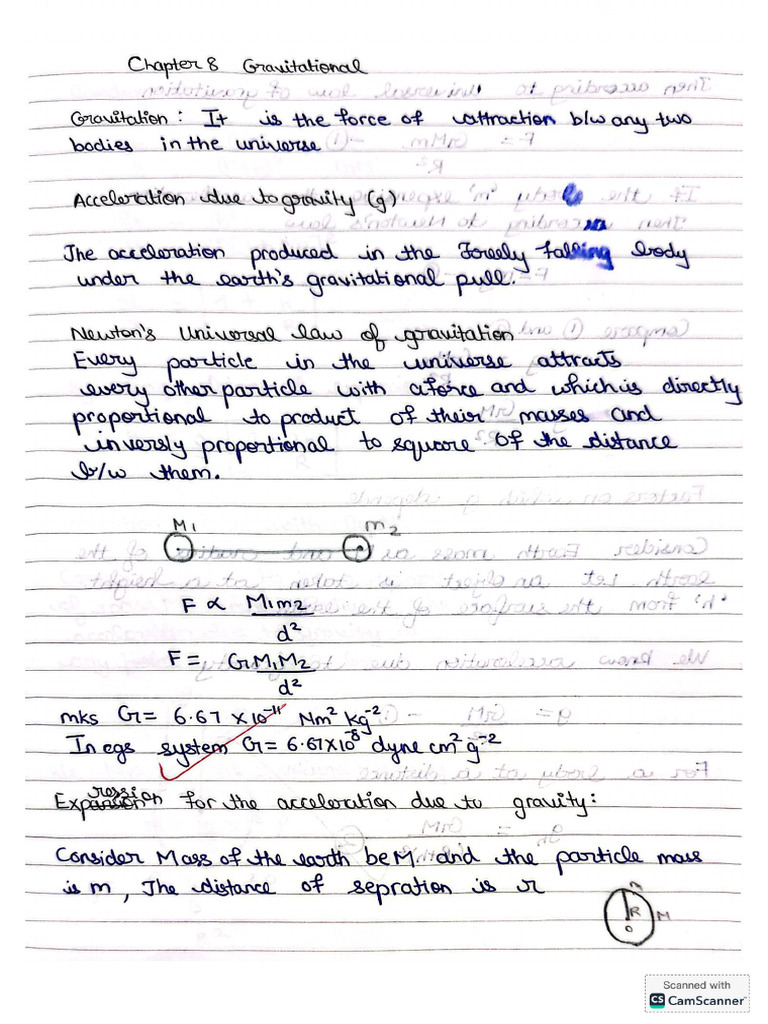 Chapter 8 Gravitational
Gravitation : It is the force of attraction b/w any two
bodies in the universe
Acceleration due to gravity (g)
The acceleration produced in the freely falling body
under the earth's gravitational pull.
Newton's Universal law of gravitation
Every particle in the universe attracts
every other particle with a force and which is directly
proportional to product of their masses and
inversly proportional to square of the distance
b/w them.
M1 m2
F ∝ M1m2
d²
F = GM1M2
d²
mks G = 6.67 ×10⁻¹¹ Nm² kg⁻²
In cgs system G = 6.67×10⁻⁸ dyne cm² g⁻²
Expression for the acceleration due to gravity :
Consider Mass of the earth be M and the particle mass
is m , The distance of sepration is r
m
R M
O
Scanned with
CS CamScanner